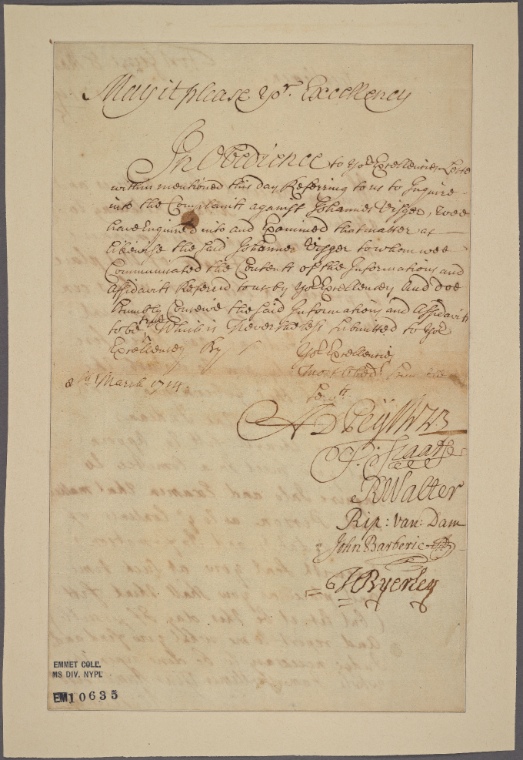 May it please yor. Excellency
In Obedience to yor Excellencies
within mentioned this day Referring to us to Inquire
into the Complaint against Johannes Visger, wee
have Enquired into and Examined that matter as
likewise the said Johannes Visger to whom wee
Communicated the Contents of the Informations and
Affidavits Referred to us by yor Excellency and doe
humbly Conceive the said Informations and Affidavits
to be true Which is Nevertheless submitted to yor
Excellency By
Yor Excellencies
most obedt. hum
Servts
March 1714
A D Peyster
S: Staats
R Walter
Rip: van: Dam
John Barberie
T Byerley
EMMET COLL.
MS DIV. NYPL
EM10635